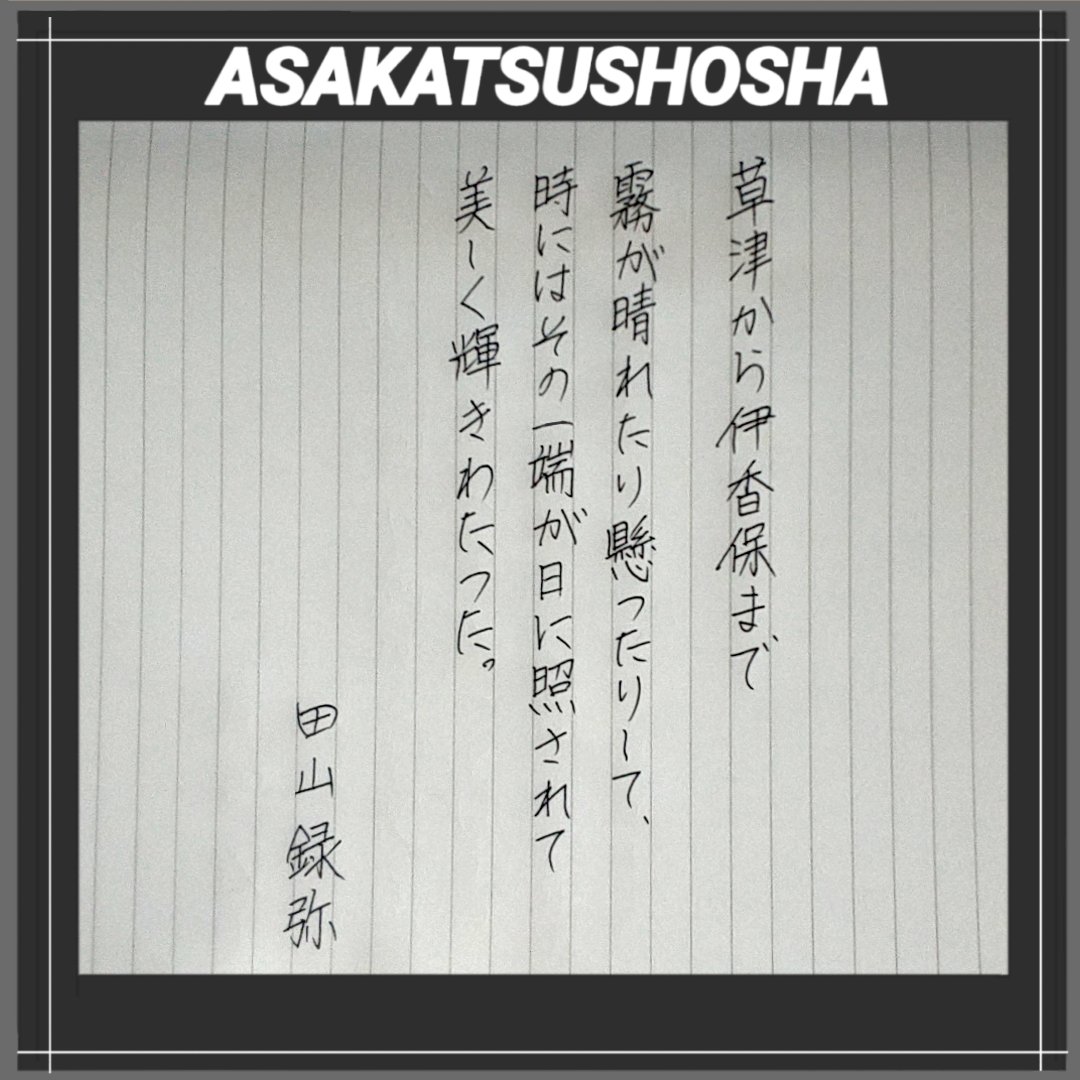 ASAKATSUSHOSHA
草津から伊香保まで
霧が晴れたり懸ったりして、
時にはその一端が日に照されて
美しく輝きわたった。
田山録弥